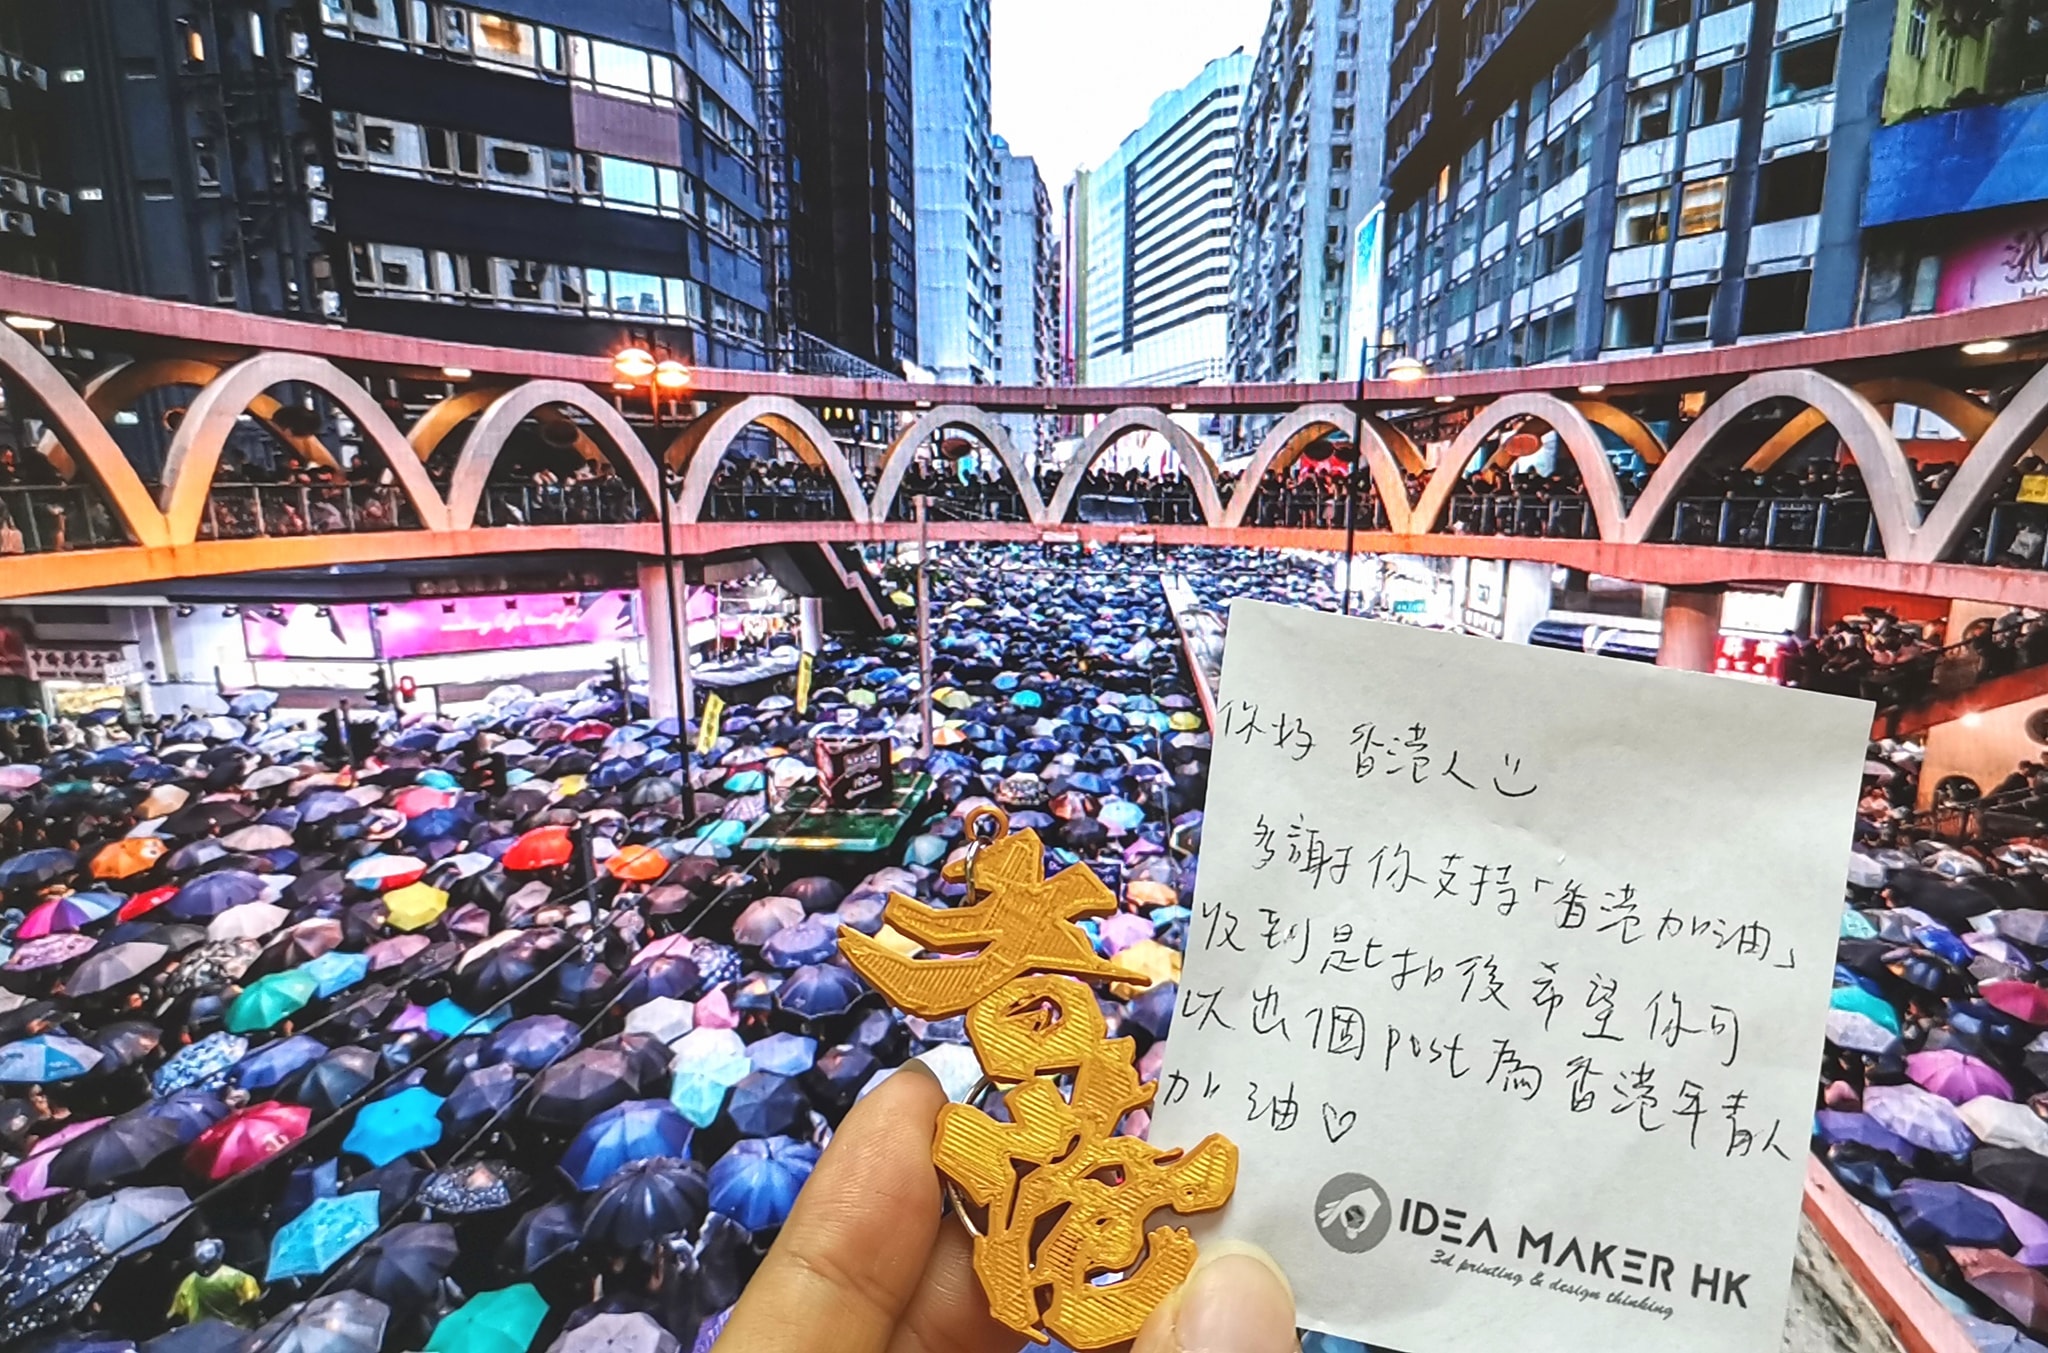 making life beautiful
你好 香港人
多謝你支持「香港加油」
收到匙扣後希望你可
以出個 post 為香港年青人
加油♡
IDEA MAKER HK
3d printing & design thinking
香港